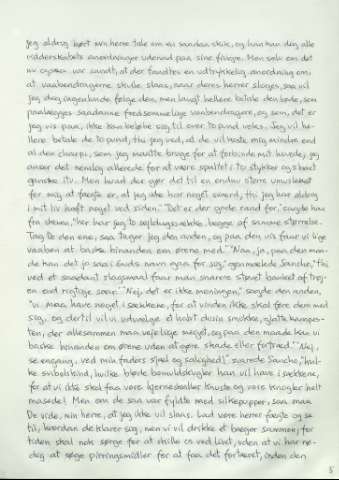 jeg aldrig hørt min herre tale om en saadan skik, og han kan dog alle
ridderskabets anordninger udenad paa sine fingre. Men selv om det
nu ogsaa var sandt, at der fandtes en udtrykkelig anordning om,
at vaabendragerne skulle slaas, naar deres herrer sloges, saa vil
jeg dog ingenlunde følge den, men langt hellere betale den bøde, som
paalægges saadanne fredsommelige vaabendragere, og som, det er
jeg vis paa, ikke kan beløbe sig til over to pund voks. Jeg vil he-
llere betale de to pund, thi jeg ved, at de vil koste mig mindre end
al den charpi, som jeg maatte bruge for at forbinde mit hoved; jeg
anser det nemlig allerede for at være spaltet i to stykker og
itu. Men hvad der gør det til en endnu større umulighed
for mig at fægte er, at jeg ikke har noget sværd, thi jeg har aldrig
i mit liv haft noget ved siden." "Det er der gode raad for," sagde han
fra skoven, "her har jeg to sække, begge af samme størrelse.
Tag De den ene, saa tager jeg den anden, og paa den vis faar vi lige
vaaben at baske hinanden om ørene med." "Naa, ja, paa den maa-
de kan det jo saa i Guds navn gaa for sig," genmælede Sancho, "thi
ved et saadant slagsmaal faar man snarere støvet banket af trøj-
en end rigtige saar." "Nej, det er ikke meningen," sagde den anden,
"vi maa have noget i sækkene, for at vinden ikke skal føre dem med
sig, og dertil vil vi udvælge et halvt dusin smukke, glatte kampes-
ten, der allesammen maa veje lige meget, og paa den maade kan vi
baske hinanden om ørene uden at gøre skade eller fortræd." "Nej,
se engang, ved min faders sjæl og salighed!," svarede Sancho, "hvil-
ke hvilke bløde bomuldskugler han vil have i sækkene,
for at vi ikke skal faa vore hjerneskaller knuste og vore knogler helt
masede! Men om de saa var fyldte med silkepupper, saa maa
De vide, min herre, at jeg ikke vil slaas. Lad vore herrer fægte og se
til, hvordan de klarer sig, men vi vil drikke et bæger sammen; for
tiden skal nok sørge for at skille os ved livet, uden at vi har nø-
dig at søge for at faa det forkortet, inden den
5